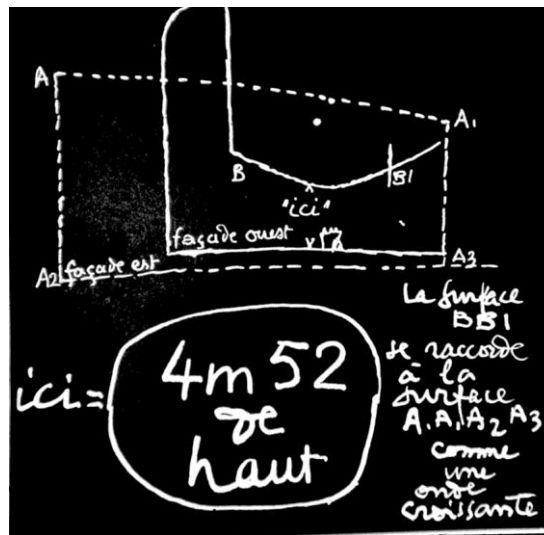 A
A1
B
B1
"ici"
façade ouest
A2
façade est
A3
ici =
4m 52
de
haut
La surface
BB1
se raccorde
à la
surface
A.A1A2 A3
comme
une
onde
croissante